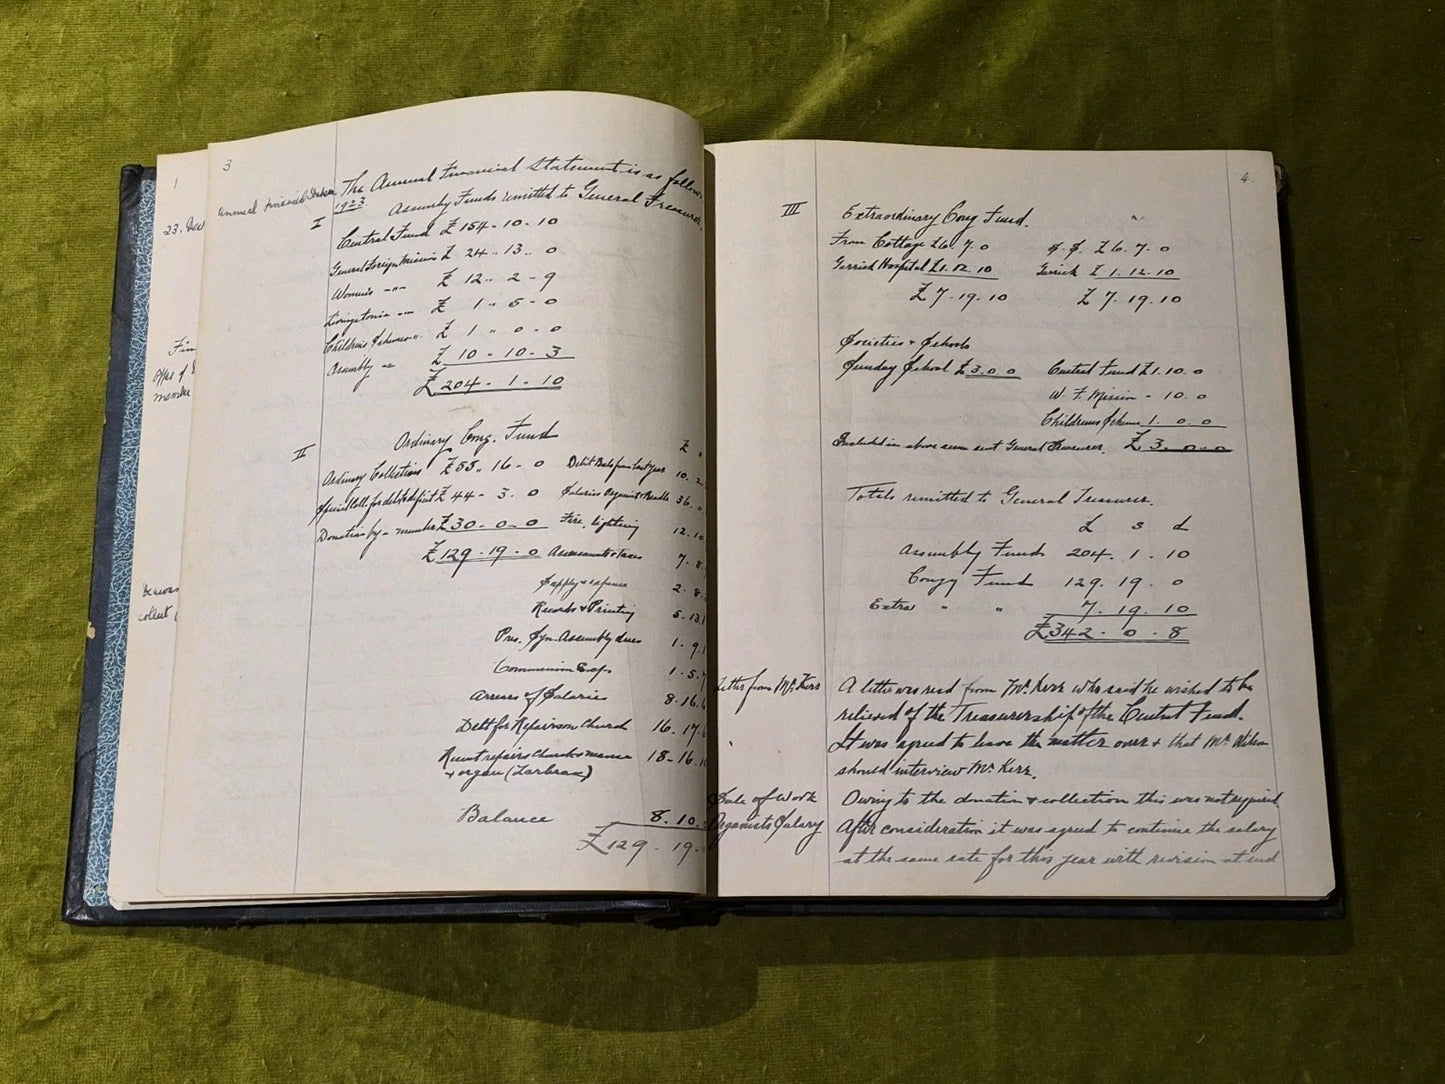 1
23. Dec
Fin
member
collect
3
Annual Financial
The Annual Financial Statement is as follows
1923.
I
Assembly Funds remitted to General Treasurer.
Central Fund £ 154 - 10 - 10
General Foreign Mission £ 24 - 13 - 0
Women's -"- £ 12 - 2 - 9
Livingstonia -"- £ 1 - 5 - 0
Children's Schemes -"- £ 1 - 0 - 0
Assembly -"- £ 10 - 10 - 3
£ 204 - 1 - 10
II
Ordinary Cong. Fund £
Ordinary Collections £55 - 16 - 0 Debit Bal. from last year 10 - 2
Special Coll. for debt & deficit £44 - 3 - 0 Salaries Organist & Beadle 36 - 0
Donation by - member £30 - 0 - 0 Fire, lighting 12 - 10
£129 - 19 - 0 Assessments & taxes 7 - 8
Supply & expense 2 - 8
Records & Printing 5 - 13
Pres. Syn. Assembly dues 1 - 9
Communion Exps 1 - 5 - 7
Arrears of Salaries 8 - 16
Debt for Repairs on Church 16 - 17
Recent repairs Church & manse 18 - 16
& organ (Larbrax)
Balance 8 - 10
£129 - 19
4.
III
Extraordinary Cong Fund.
From Cottage £6. 7. 0 £6. 7. 0
Garrick Hospital £1. 12. 10 Garrick £1. 12. 10
£7 - 19 - 10 £7 - 19 - 10
Societies & Schools
Sunday School £3. 0. 0 Central Fund £1. 10. 0
W. F. Mission - 10. 0
Childrens Scheme 1. 0. 0
Included in above sums sent General Treasurer £3. 0. 0
Totals remitted to General Treasurer.
£ s d
Assembly Funds 204. 1. 10
Congl Fund 129. 19. 0
Extra " " 7. 19. 10
£342 - 0 - 8
Letter from Mr Kerr
A letter was read from Mr. Kerr who said he wished to be
relieved of the Treasurership of the Central Fund.
It was agreed to leave the matter over & that Mr Wilson
should interview Mr. Kerr.
Sale of Work
Owing to the donation & collection this was not required
Organists Salary
After consideration it was agreed to continue the salary
at the same rate for this year with revision at end